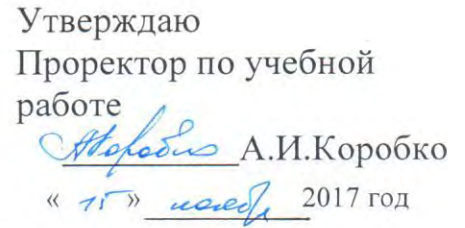 Утверждаю
Проректор по учебной
работе
А.И.Коробко
« 15 » ноября 2017 год